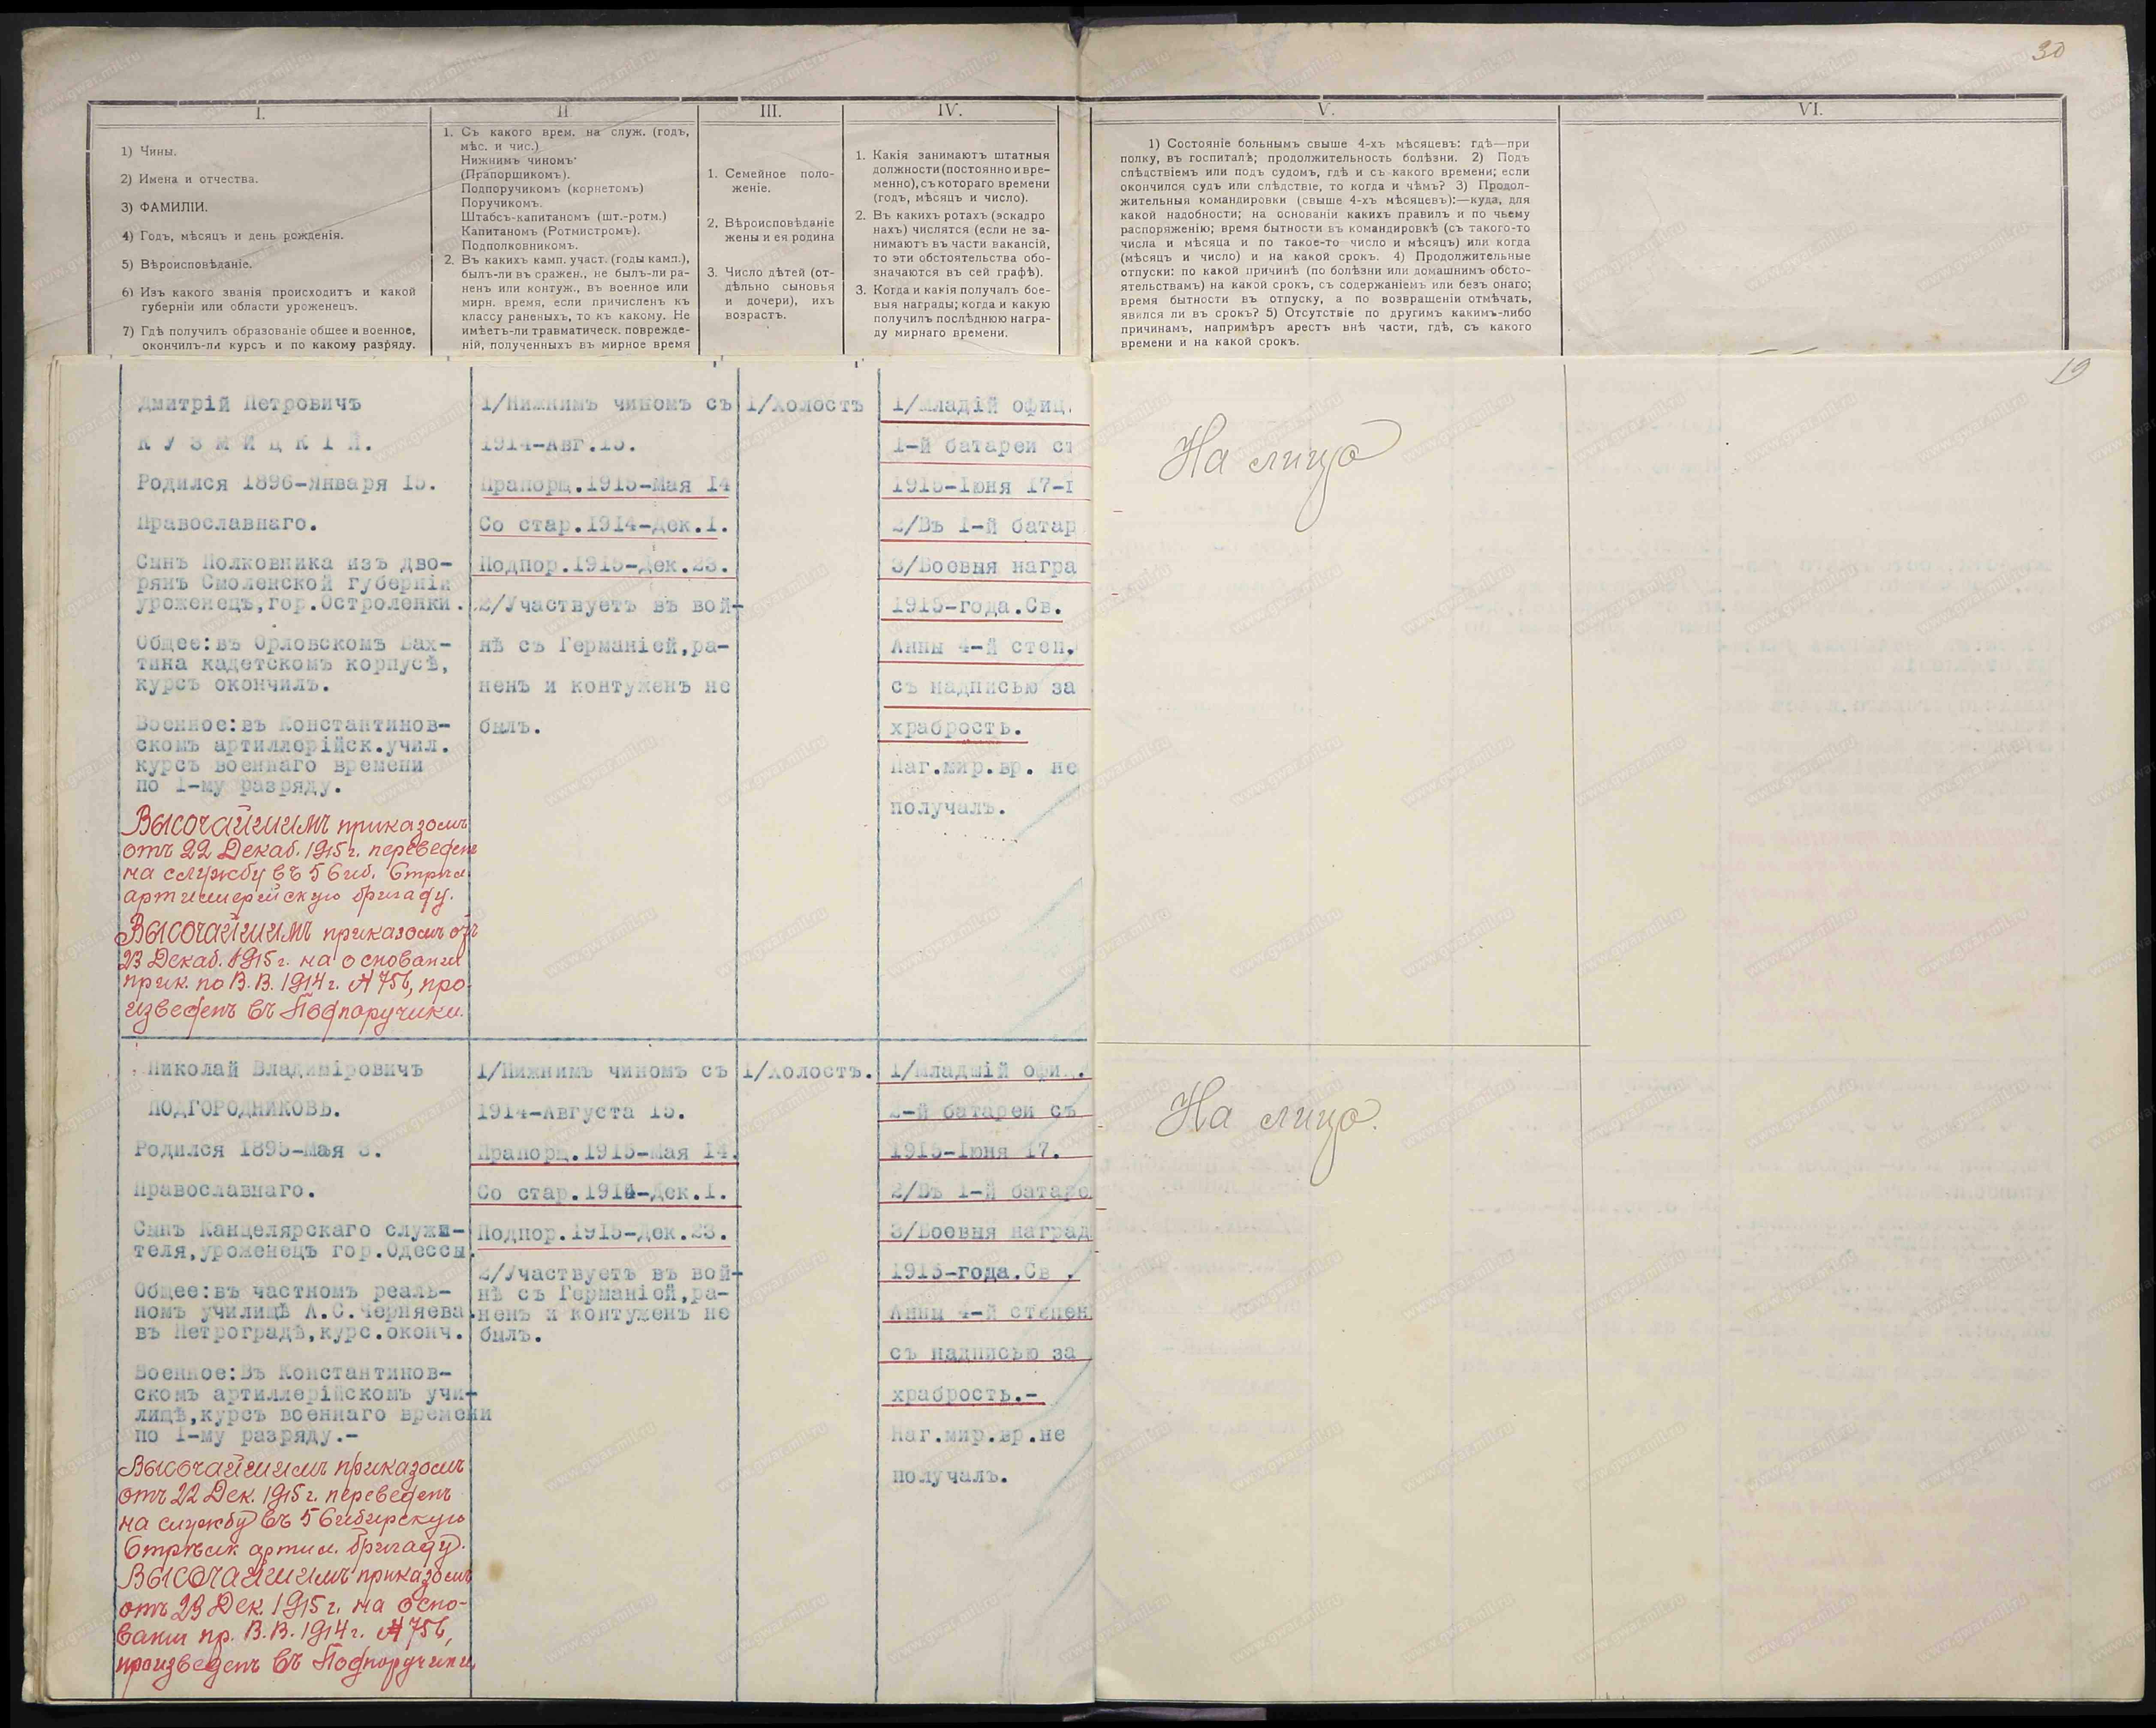 30
I.
1) Чины.
2) Имена и отчества.
3) ФАМИЛІИ.
4) Годъ, мѣсяцъ и день рожденія.
5) Вѣроисповѣданіе.
6) Изъ какого званія происходитъ и какой
губерніи или области уроженецъ.
7) Гдѣ получилъ образованіе общее и военное,
окончилъ-ли курсъ и по какому разряду.
II.
1. Съ какого врем. на служ. (годъ,
мѣс. и чис.)
Нижнимъ чиномъ
(Прапорщикомъ).
Подпоручикомъ (корнетомъ)
Поручикомъ.
Штабсъ-капитаномъ (шт.-ротм.)
Капитаномъ (Ротмистромъ).
Подполковникомъ.
2. Въ какихъ камп. участ. (годы камп.),
былъ-ли въ сражен., не былъ-ли ра-
ненъ или контуж., въ военное или
мирн. время, если причисленъ къ
классу раненыхъ, то къ какому. Не
имѣетъ-ли травматическ. поврежде-
ній, полученныхъ въ мирное время
III.
1. Семейное поло-
женіе.
2. Вѣроисповѣданіе
жены и ея родина
3. Число дѣтей (от-
дѣльно сыновья
и дочери), ихъ
возрастъ.
IV.
1. Какія занимаютъ штатныя
должности (постоянно и вре-
менно), съ котораго времени
(годъ, мѣсяцъ и число).
2. Въ какихъ ротахъ (эскадро
нахъ) числятся (если не за-
нимаютъ въ части вакансій,
то эти обстоятельства обо-
значаются въ сей графѣ).
3. Когда и какія получалъ бое-
выя награды; когда и какую
получилъ послѣднюю награ-
ду мирнаго времени.
V.
1) Состояніе больнымъ свыше 4-хъ мѣсяцевъ: гдѣ—при
полку, въ госпиталѣ; продолжительность болѣзни. 2) Подъ
слѣдствіемъ или подъ судомъ, гдѣ и съ какого времени; если
окончился судъ или слѣдствіе, то когда и чѣмъ? 3) Продол-
жительныя командировки (свыше 4-хъ мѣсяцевъ):—куда, для
какой надобности; на основаніи какихъ правилъ и по чьему
распоряженію; время бытности въ командировкѣ (съ такого-то
числа и мѣсяца и по такое-то число и мѣсяцъ) или когда
(мѣсяцъ и число) и на какой срокъ. 4) Продолжительные
отпуски: по какой причинѣ (по болѣзни или домашнимъ обсто-
ятельствамъ) на какой срокъ, съ содержаніемъ или безъ онаго;
время бытности въ отпуску, а по возвращеніи отмѣчать,
явился ли въ срокъ? 5) Отсутствіе по другимъ какимъ-либо
причинамъ, напримѣръ арестъ внѣ части, гдѣ, съ какого
времени и на какой срокъ.
VI.
19
Дмитрій Петровичъ
К У З М И Ц К І Й.
Родился 1896-Января 15.
Православнаго.
Сынъ Полковника изъ дво-
рянъ Смоленской губерніи
уроженецъ,гор.Остроленки.
Общее:въ Орловскомъ Бах-
тина кадетскомъ корпусѣ,
курсъ окончилъ.
Военное:въ Константинов-
скомъ артиллерійск.учил.
курсъ военнаго времени
по 1-му разряду.
Высочайшимъ приказомъ
отъ 22 Декаб. 1915 г. переведенъ
на службу въ 5 Сиб. Стрѣл.
артиллерійскую бригаду.
Высочайшимъ приказомъ отъ
23 Декаб. 1915 г. на основаніи
прик. по В.В. 1914 г. № 756, про-
изведенъ въ Подпоручики.
1/Нижнимъ чиномъ съ
1914-Авг.15.
Прапорщ.1915-Мая 14
Со стар.1914-Дек.1.
Подпор.1915-Дек.23.
2/Участвуетъ въ вой-
нѣ съ Германіей,ра-
ненъ и контуженъ не
былъ.
1/Холостъ
1/Младій офиц.
1-й батареи съ
1915-Іюня 17-г
2/Въ 1-й батар
3/Боевыя награ
1915-года.Св.
Анны 4-й степ.
съ надписью за
храбрость.
Наг.мир.вр. не
получалъ.
На лицо
Николай Владиміровичъ
ПОДГОРОДНИКОВЪ.
Родился 1895-Мая 3.
Православнаго.
Сынъ Канцелярскаго служи-
теля,уроженецъ гор.Одессы.
Общее:въ частномъ реаль-
номъ училищѣ А.С.Черняева
въ Петроградѣ,курс.оконч.
Военное:Въ Константинов-
скомъ артиллерійскомъ учи-
лищѣ,курсъ военнаго времени
по 1-му разряду.-
Высочайшимъ приказомъ
отъ 22 Дек. 1915 г. переведенъ
на службу въ 5 Сибирскую
Стрѣлк артил. бригаду.
Высочайшимъ приказомъ
отъ 23 Дек. 1915 г. на осно-
ваніи пр. В.В. 1914 г. № 756,
произведенъ въ Подпоручики
1/Нижнимъ чиномъ съ
1914-Августа 15.
Прапорщ.1915-Мая 14.
Со стар.1914-Дек.1.
Подпор.1915-Дек.23.
2/Участвуетъ въ вой-
нѣ съ Германіей,ра-
ненъ и контуженъ не
былъ.
1/Холостъ.
1/Младшій офи.
2-й батареи съ
1915-Іюня 17.
2/Въ 1-й батаре
3/Боевыя наград
1915-года.Св.
Анны 4-й степен
съ надписью за
храбрость.-
Наг.мир.вр.не
получалъ.
На лицо.